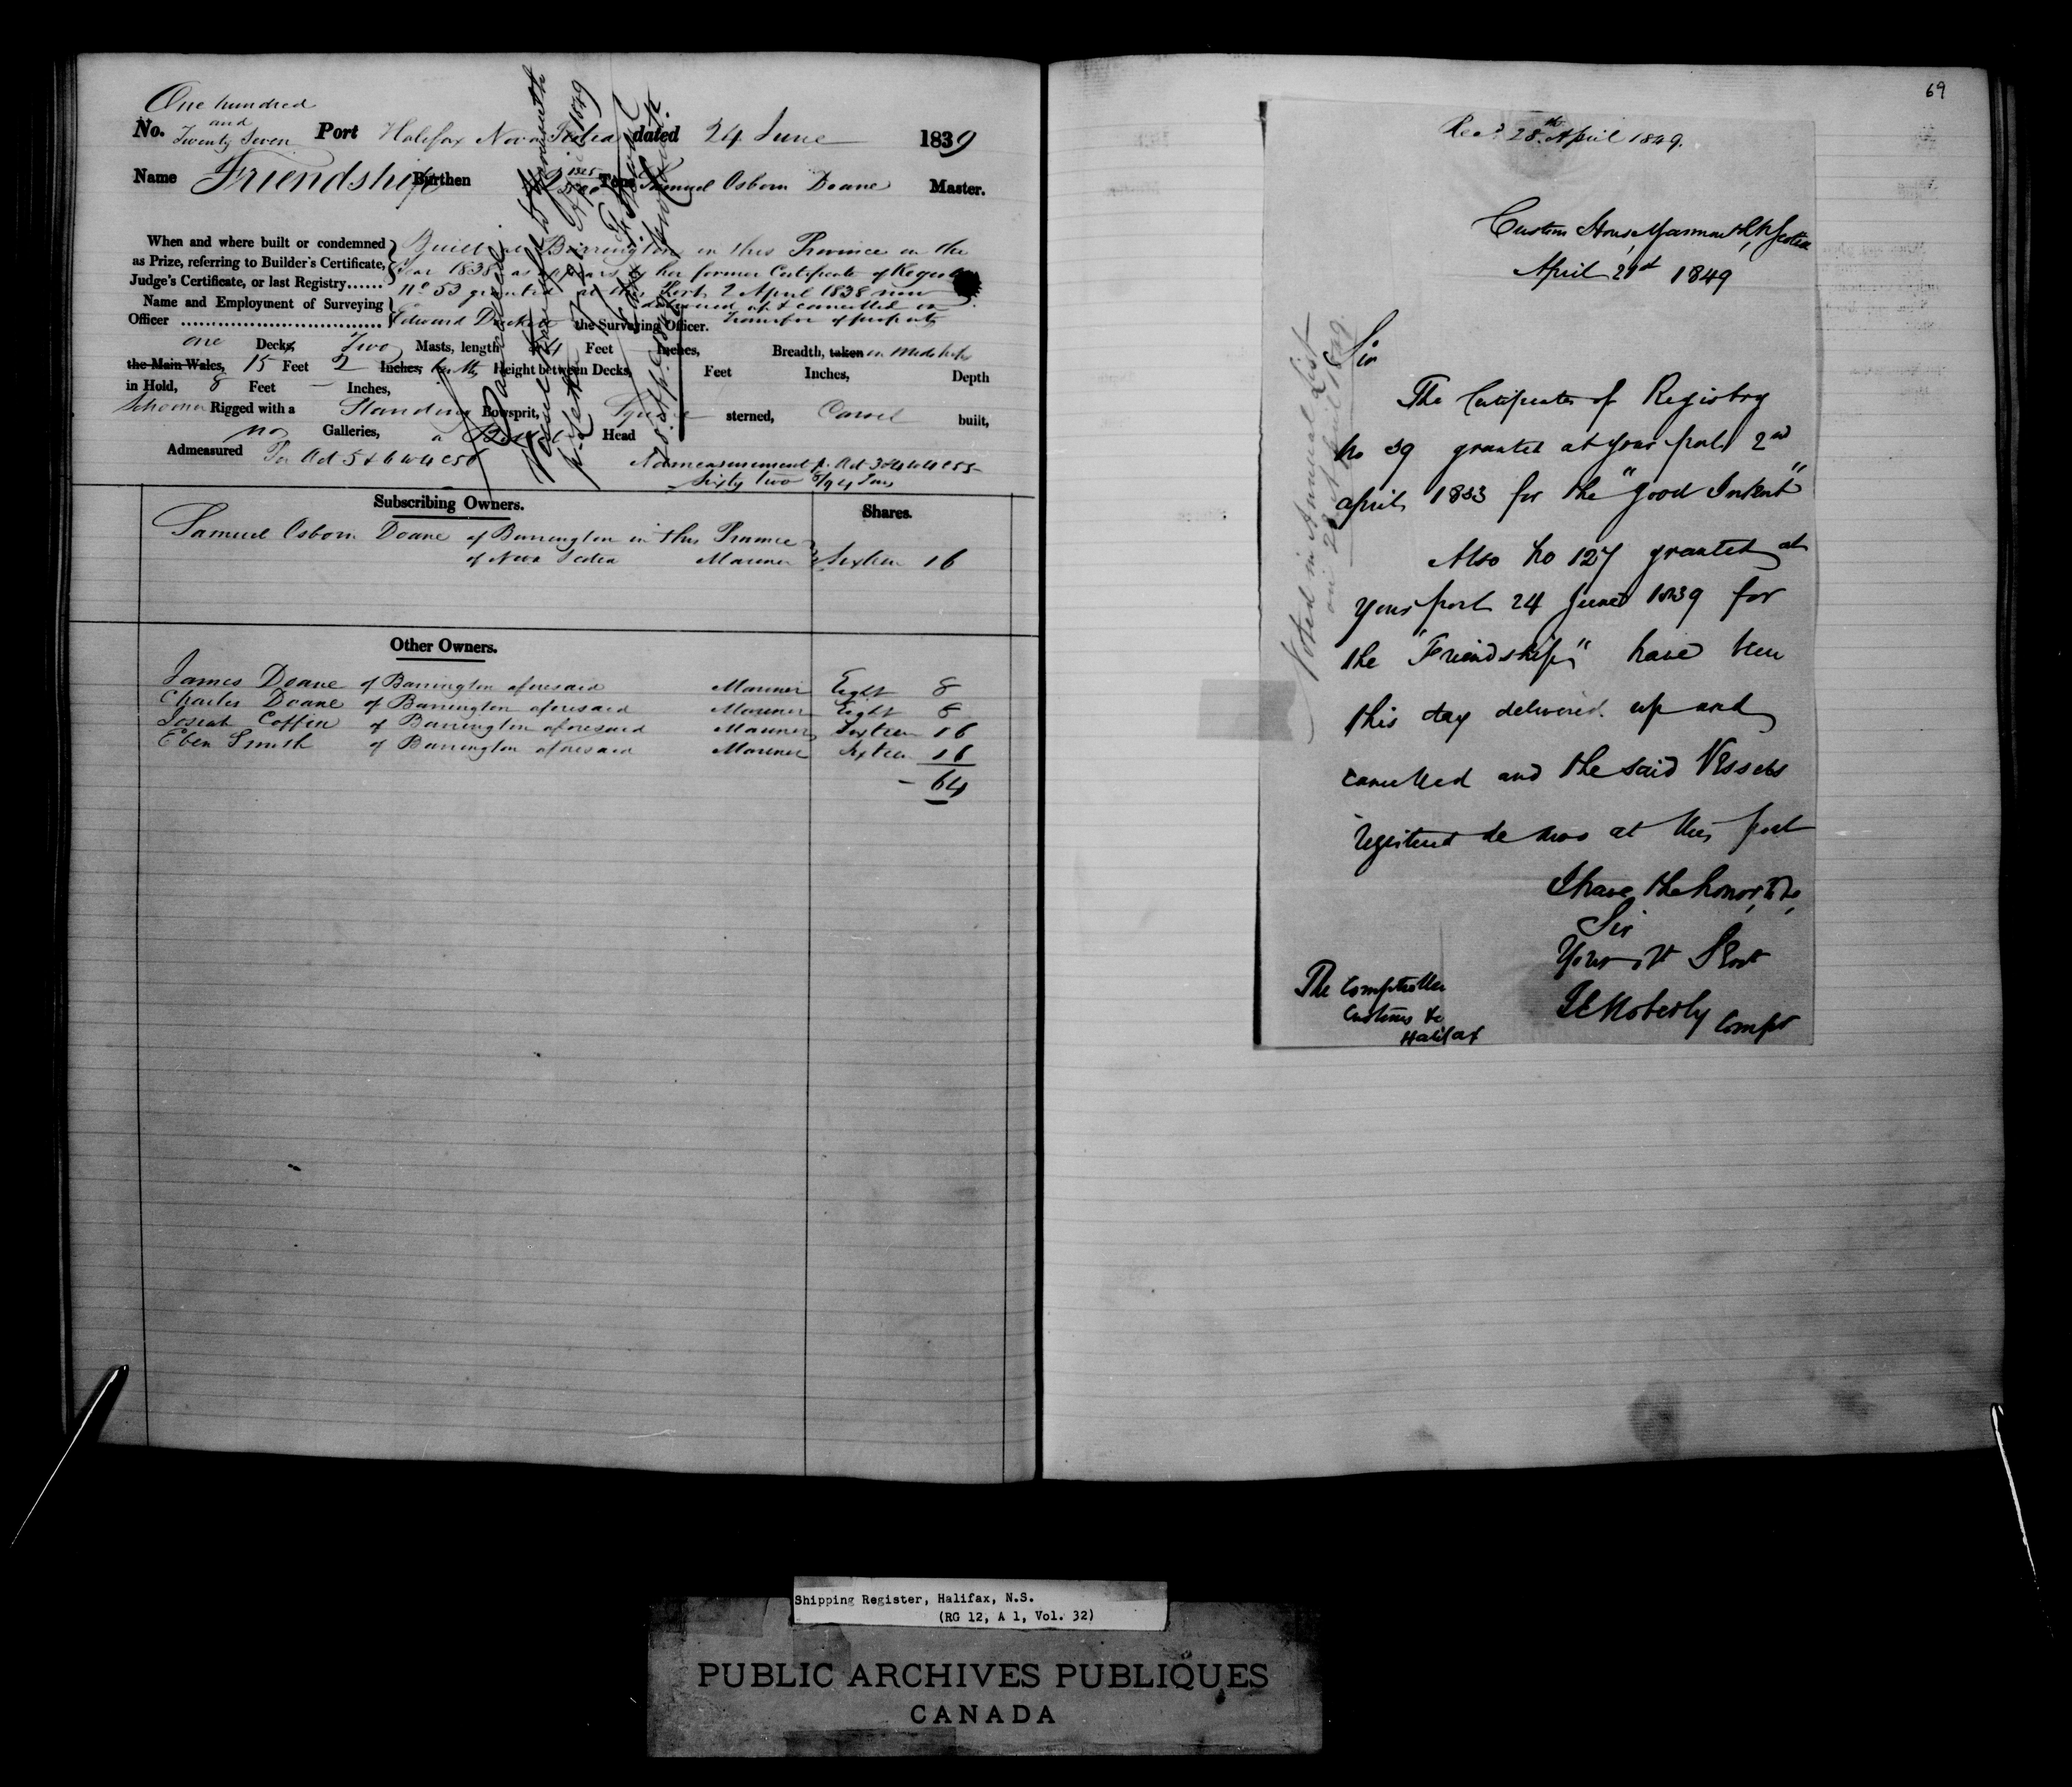 One hundred
and
No. Twenty Seven Port Halifax Nova Scotia dated 24 June 1839
Name Friendship Burthen Tons Samuel Osborn Doane Master.
When and where built or condemned
as Prize, referring to Builder's Certificate,
Judge's Certificate, or last Registry......
Built at Barrington in this Province in the
Year 1838 as appears by her former Certificate of Registry
No 53 granted at this Port 2 April 1838 now
delivered up & cancelled on
Transfer of property
Name and Employment of Surveying
Officer Edward the Surveying Officer.
one Decks, Two Masts, length Feet Inches, Breadth, taken in Midships
the Main Wales, 15 Feet 2 Inches, Height between Decks, Feet Inches, Depth
in Hold, 8 Feet — Inches,
Schooner Rigged with a Standing Bowsprit, Square sterned, Carvel built,
no Galleries, a Head
Admeasured Per Act 5 & 6 W 4 C 56
Admeasurement p. Act 3 & 4 W 4 C 55
Sixty two /94 Tons
Subscribing Owners. Shares.
Samuel Osborn Doane of Barrington in this Province
of Nova Scotia Mariner Sixteen 16
Other Owners.
James Doane of Barrington aforesaid Mariner Eight 8
Charles Doane of Barrington aforesaid Mariner Eight 8
Josiah Coffin of Barrington aforesaid Mariner Sixteen 16
Eben Smith of Barrington aforesaid Mariner Sixteen 16
64
69
Recd 28th April 1849.
Custom House Yarmouth N Scotia
April 21st 1849
Sir
The Certificates of Registry
No 39 granted at your port 2nd
april 1833 for the "Good Intent"
Also No 127 granted at
your port 24 June 1839 for
the "Friendship" have been
this day delivered up and
cancelled and the said Vessels
registered de novo at this port
I have the honor to be,
Sir
Your Ot Servt
Moberly Compr
The Comptroller
Customs &c
Halifax
Noted in Annual List
on 28 April 1849.
Shipping Register, Halifax, N.S.
(RG 12, A 1, Vol. 32)
PUBLIC ARCHIVES PUBLIQUES
CANADA